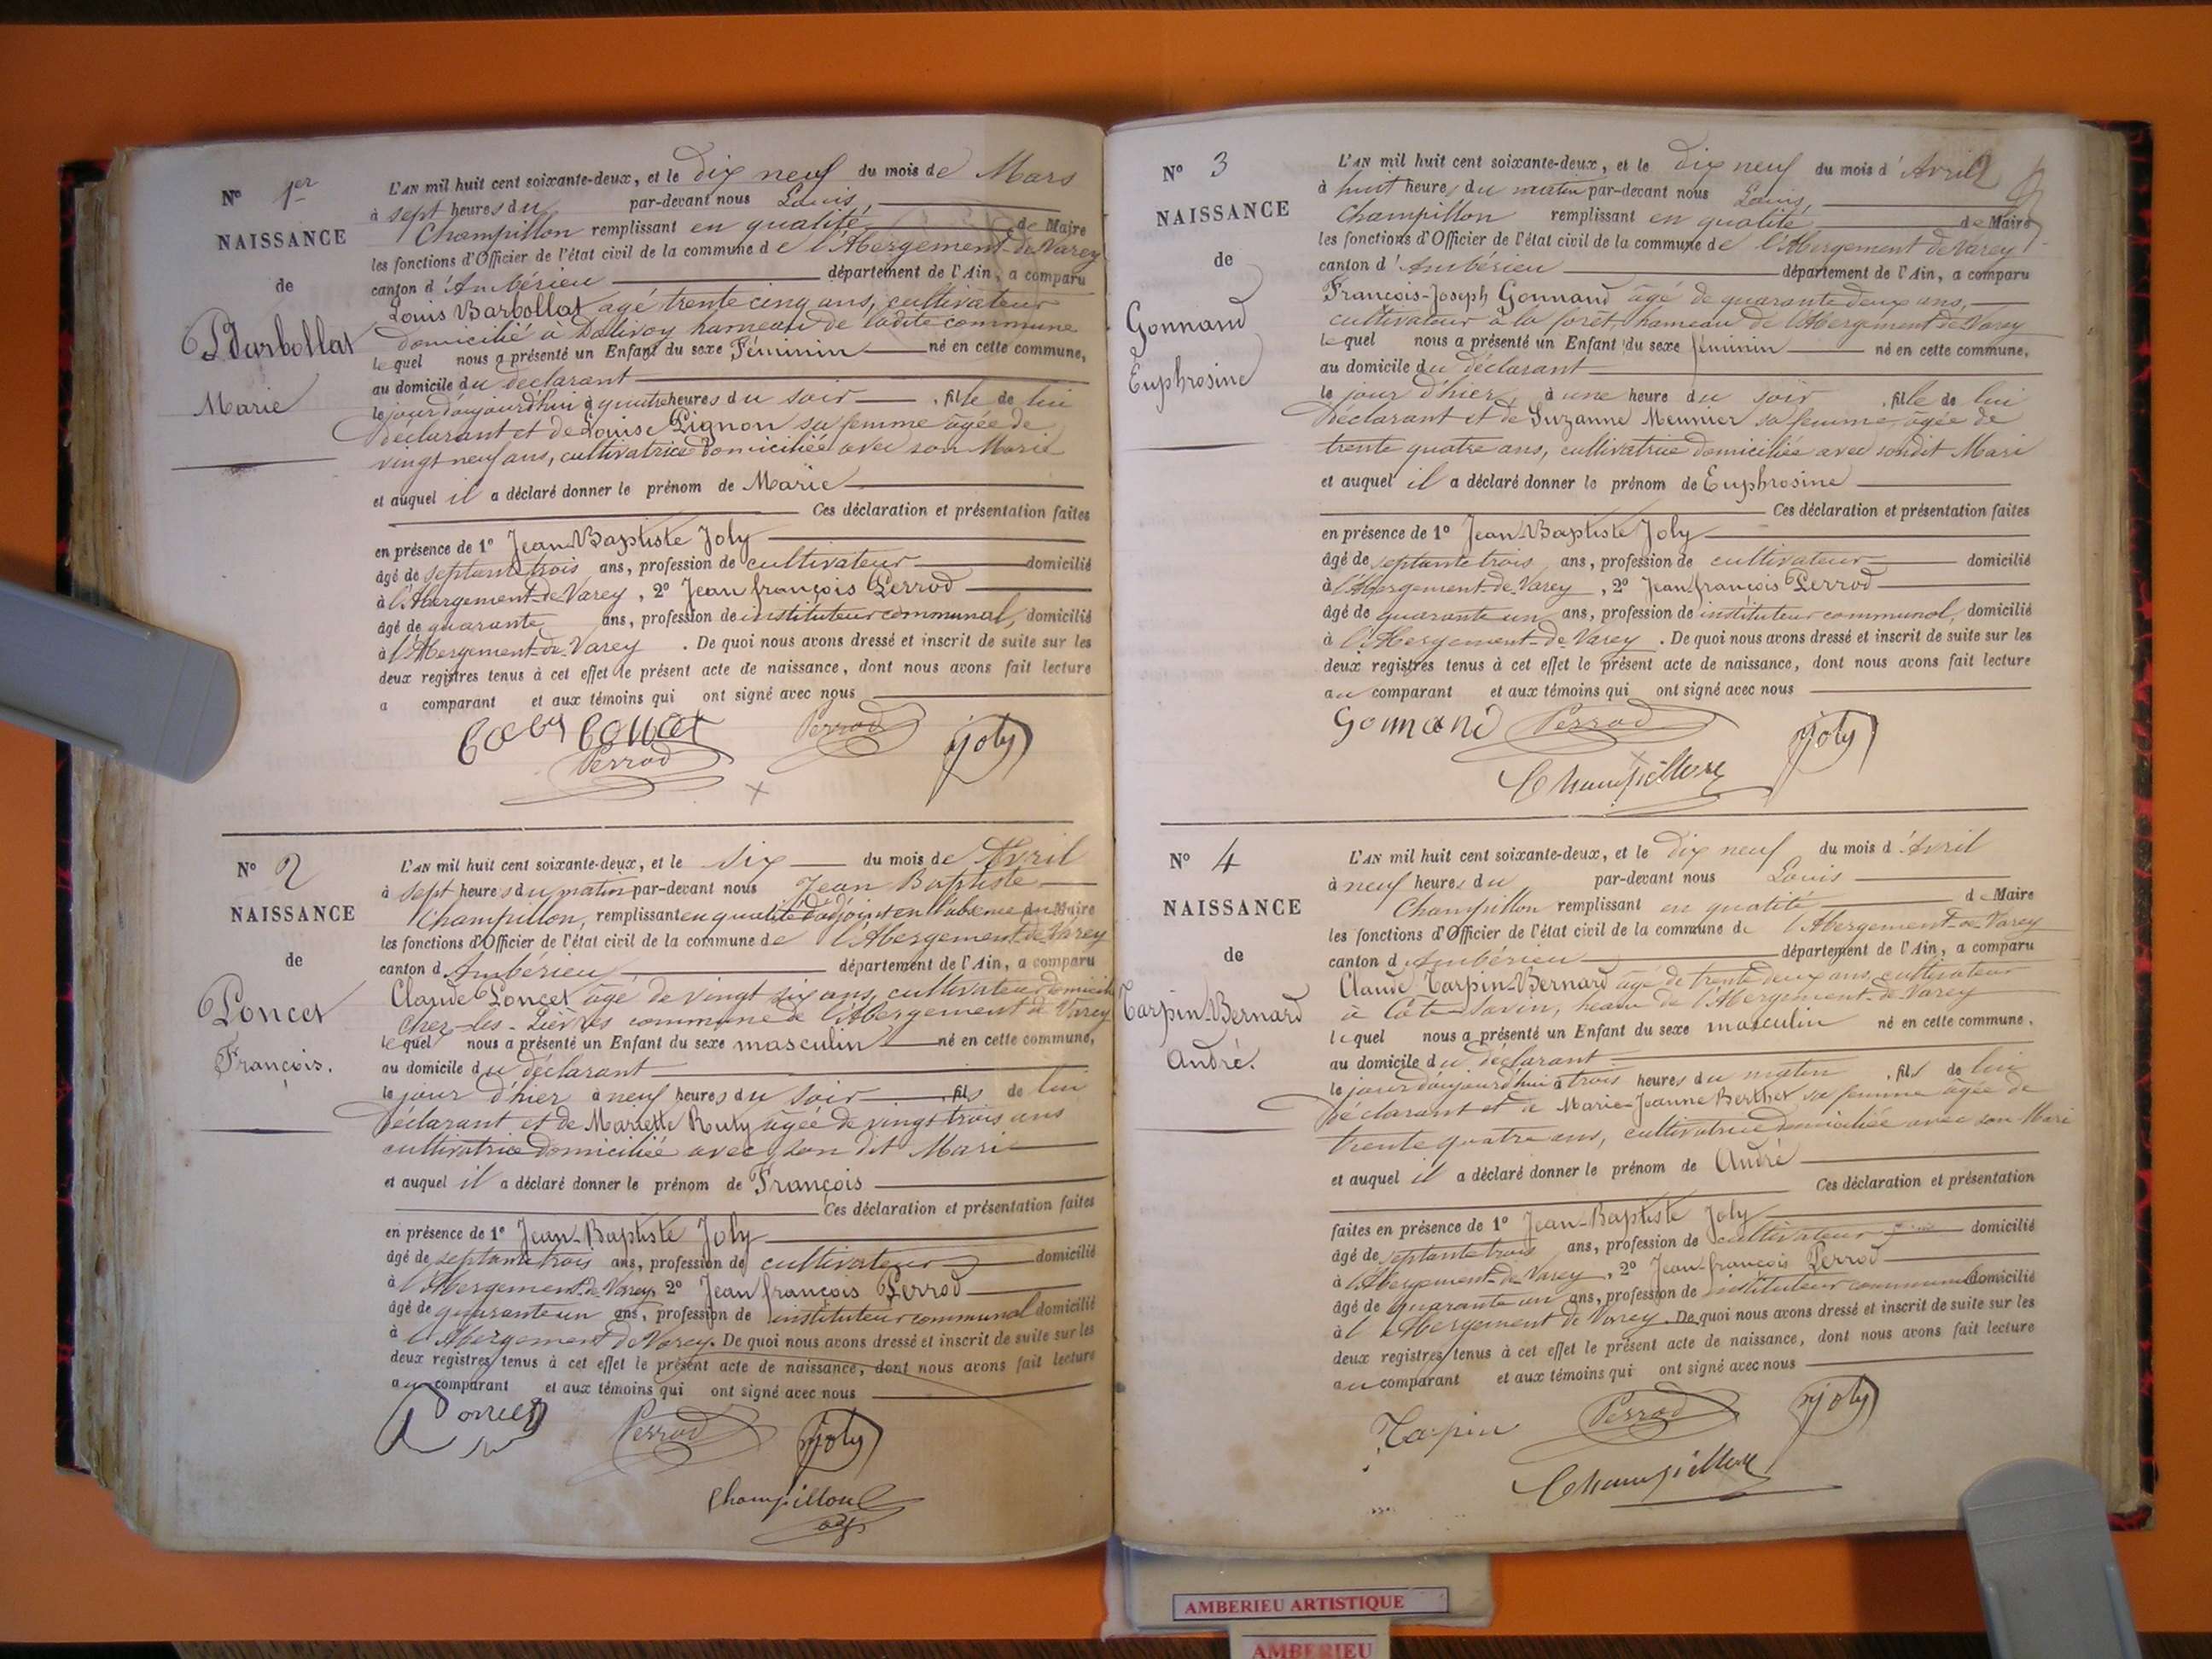 N° 1er
NAISSANCE
de
Barbollat
Marie
L'AN mil huit cent soixante-deux, et le dix neuf du mois de Mars
à sept heures du par-devant nous Louis,
Champillon remplissant en qualité de Maire
les fonctions d'Officier de l'état civil de la commune de l'Abergement-de-Varey
canton d'Ambérieu département de l'Ain, a comparu
Louis Barbollat âgé trente cinq ans, cultivateur
domicilié à hameau de ladite commune
lequel nous a présenté un Enfant du sexe Féminin né en cette commune,
au domicile du déclarant
le jour d'aujourd'hui à quatre heures du soir , fille de lui
déclarant et de Louise Pignon sa femme âgée de
vingt neuf ans, cultivatrice domiciliée avec son Mari
et auquel il a déclaré donner le prénom de Marie
Ces déclaration et présentation faites
en présence de 1° Jean-Baptiste Joly
âgé de septante trois ans, profession de cultivateur domicilié
à l'Abergement-de-Varey, 2° Jean françois Perrod
âgé de quarante ans, profession de instituteur communal, domicilié
à l'Abergement-de-Varey. De quoi nous avons dressé et inscrit de suite sur les
deux registres tenus à cet effet le présent acte de naissance, dont nous avons fait lecture
a comparant et aux témoins qui ont signé avec nous
Perrod joly
Perrod
N° 2
NAISSANCE
de
Poncet
François.
L'AN mil huit cent soixante-deux, et le six du mois de Avril
à sept heures du matin par-devant nous Jean Baptiste
Champillon, remplissant en qualité d'adjoint en l'absence du Maire
les fonctions d'Officier de l'état civil de la commune de l'Abergement de Varey
canton d'Ambérieu département de l'Ain, a comparu
Claude Poncet âgé de vingt six ans, cultivateur domicilié
Chez-les-Lièvres commune de l'Abergement de Varey
lequel nous a présenté un Enfant du sexe masculin né en cette commune,
au domicile du déclarant
le jour d'hier à neuf heures du soir , fils de lui
déclarant et de Mariette Ruty âgée de vingt trois ans
cultivatrice domiciliée avec son dit Mari
et auquel il a déclaré donner le prénom de François
Ces déclaration et présentation faites
en présence de 1° Jean-Baptiste Joly
âgé de septante trois ans, profession de cultivateur domicilié
à l'Abergement-de-Varey, 2° Jean françois Perrod
âgé de quarante un ans, profession de instituteur communal domicilié
à l'Abergement de Varey. De quoi nous avons dressé et inscrit de suite sur les
deux registres tenus à cet effet le présent acte de naissance, dont nous avons fait lecture
au comparant et aux témoins qui ont signé avec nous
Poncet Perrod joly
Champillon
adj
N° 3
NAISSANCE
de
Gonnand
Euphrosine
L'AN mil huit cent soixante-deux, et le dix neuf du mois d'Avril
à huit heures du matin par-devant nous Louis,
Champillon remplissant en qualité de Maire
les fonctions d'Officier de l'état civil de la commune de l'Abergement de Varey
canton d'Ambérieu département de l'Ain, a comparu
François-Joseph Gonnand âgé de quarante deux ans,
cultivateur à la forêt, hameau de l'Abergement de Varey
lequel nous a présenté un Enfant du sexe féminin né en cette commune,
au domicile du déclarant
le jour d'hier, à une heure du soir , fille de lui
déclarant et de Suzanne Meunier sa femme, âgée de
trente quatre ans, cultivatrice domiciliée avec sondit Mari
et auquel il a déclaré donner le prénom de Euphrosine
Ces déclaration et présentation faites
en présence de 1° Jean-Baptiste Joly
âgé de septante trois ans, profession de cultivateur domicilié
à l'Abergement-de-Varey, 2° Jean françois Perrod
âgé de quarante un ans, profession de instituteur communal, domicilié
à l'Abergement-de-Varey. De quoi nous avons dressé et inscrit de suite sur les
deux registres tenus à cet effet le présent acte de naissance, dont nous avons fait lecture
au comparant et aux témoins qui ont signé avec nous
Gonnand Perrod joly
Champillon
N° 4
NAISSANCE
de
Tarpin-Bernard
André.
L'AN mil huit cent soixante-deux, et le dix neuf du mois d'Avril
à neuf heures du par-devant nous Louis
Champillon remplissant en qualité de Maire
les fonctions d'Officier de l'état civil de la commune de l'Abergement-de-Varey
canton d'Ambérieu département de l'Ain, a comparu
Claude Tarpin-Bernard âgé de trente deux ans, cultivateur
à Côte-Savin, heau de l'Abergement-de-Varey
lequel nous a présenté un Enfant du sexe masculin né en cette commune,
au domicile du déclarant
le jour d'aujourd'hui à trois heures du matin , fils de lui
déclarant et de Marie-Jeanne Berthet sa femme âgée de
trente quatre ans, cultivatrice domiciliée avec son Mari
et auquel il a déclaré donner le prénom de André
Ces déclaration et présentation
faites en présence de 1° Jean-Baptiste Joly
âgé de septante trois ans, profession de cultivateur domicilié
à l'Abergement-de-Varey, 2° Jean-françois Perrod
âgé de quarante un ans, profession de instituteur communal domicilié
à l'Abergement de Varey. De quoi nous avons dressé et inscrit de suite sur les
deux registres tenus à cet effet le présent acte de naissance, dont nous avons fait lecture
au comparant et aux témoins qui ont signé avec nous
Tarpin Perrod joly
Champillon
AMBERIEU ARTISTIQUE
AMBERIEU